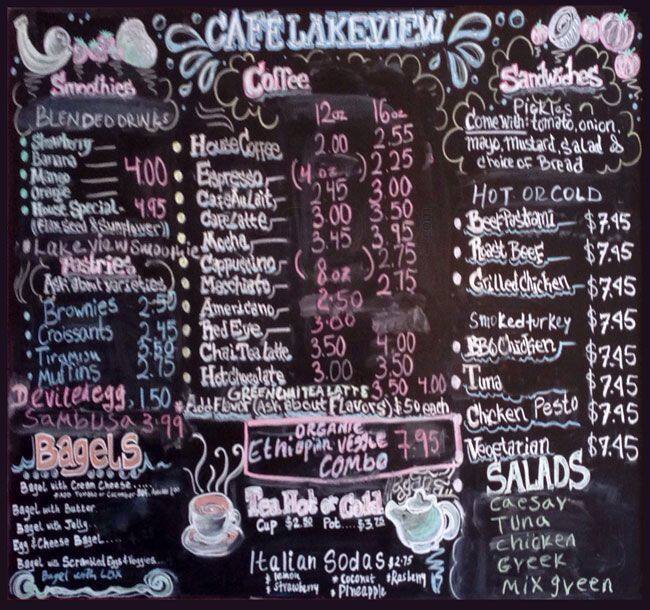 CAFÉ LAKEVIEW
Smoothies
BLENDED DRINKS
Strawberry
Banana
Mango
Orange
4.00
House Special - 4.95
(Flax seed & Sunflower)
Lakeview Smoothie
Pastries
Ask about varieties
Brownies 2.50
Croissants 2.45
Tiramisu 3.50
Muffins 2.75
Deviled egg 1.50
Sambusa 3.99
Bagels
Bagel with Cream Cheese.....
Bagel with Butter
Bagel with Jelly...
Egg & Cheese Bagel....
Bagel w/ Scrambled Eggs & Veggies...
Bagel with LOX
Coffee
12oz 16oz
House Coffee 2.00 2.55
Espresso (4oz) 2.25
Cafe Au Lait 2.45 3.00
Cafe Latte 3.00 3.50
Mocha 3.45 3.95
Cappuccino (8oz) 2.75
Macchiato 2.75
Americano 2.50
Red Eye 3.00
Chai Tea Latte 3.50 4.00
Hot Chocolate 3.00 3.50
GREEN CHAI TEA LATTE 3.50 4.00
Add Flavor (Ask about Flavors) $.50 each
ORGANIC
Ethiopian VEGGIE
COMBO
7.95
Tea Hot or Cold
Cup $2.50 Pot... $3.75
Italian Sodas $2.75
lemon coconut Rasberry
strawberry Pineapple
Sandwiches
Pickles
Come with: tomato, onion,
mayo, mustard, salad &
choice of Bread
HOT OR COLD
Beef Pastrami $7.45
Roast Beef $7.45
Grilled Chicken $7.45
Smoked turkey $7.45
BBQ Chicken $7.45
Tuna $7.45
Chicken Pesto $7.45
Vegetarian $7.45
SALADS
Caesar
Tuna
Chicken
Greek
Mix green